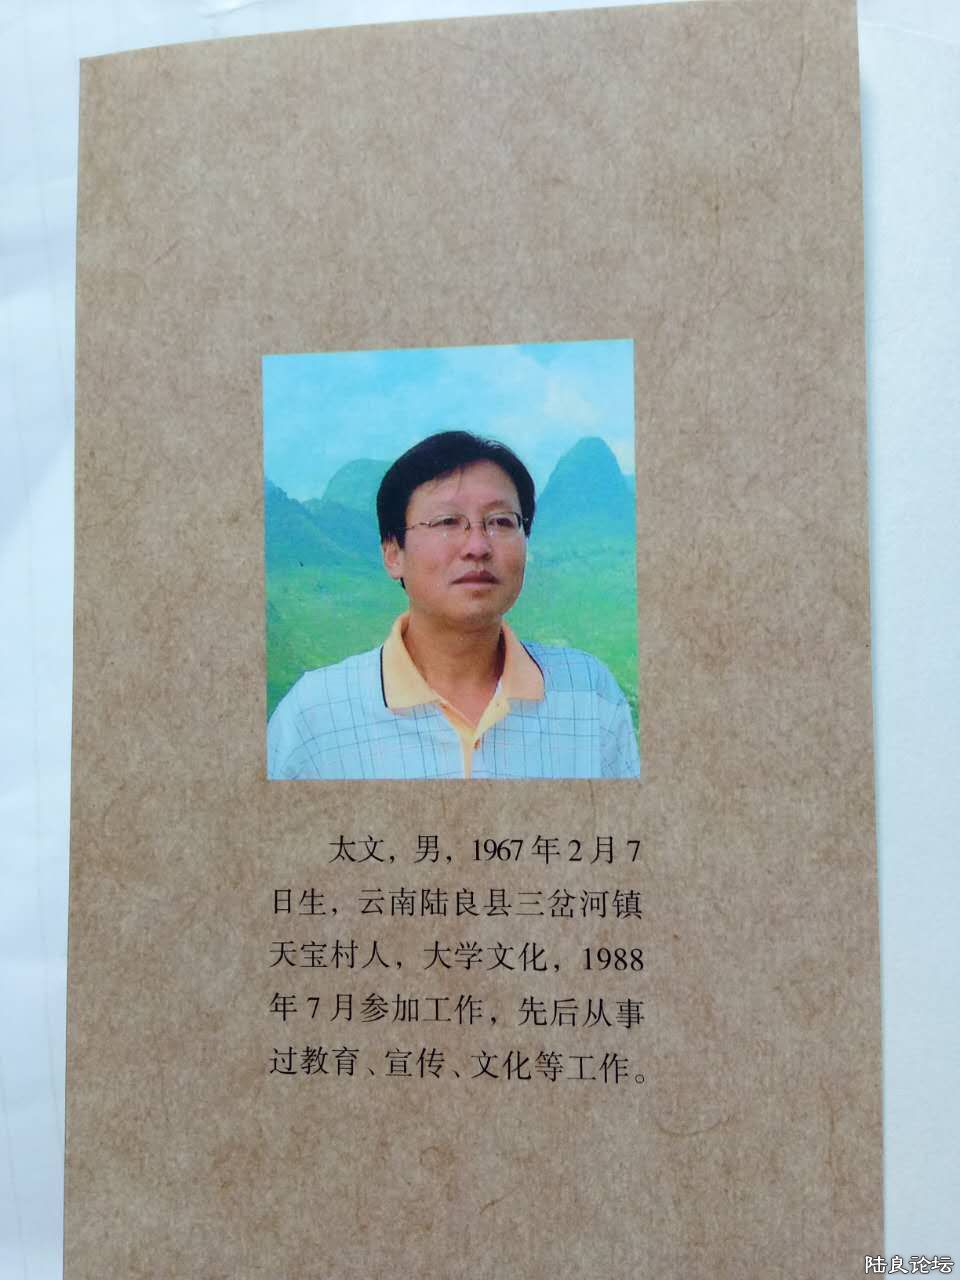 太文，男，1967年2月7
日生，云南陆良县三岔河镇
天宝村人，大学文化，1988
年7月参加工作，先后从事
过教育、宣传、文化等工作。
陆良论坛